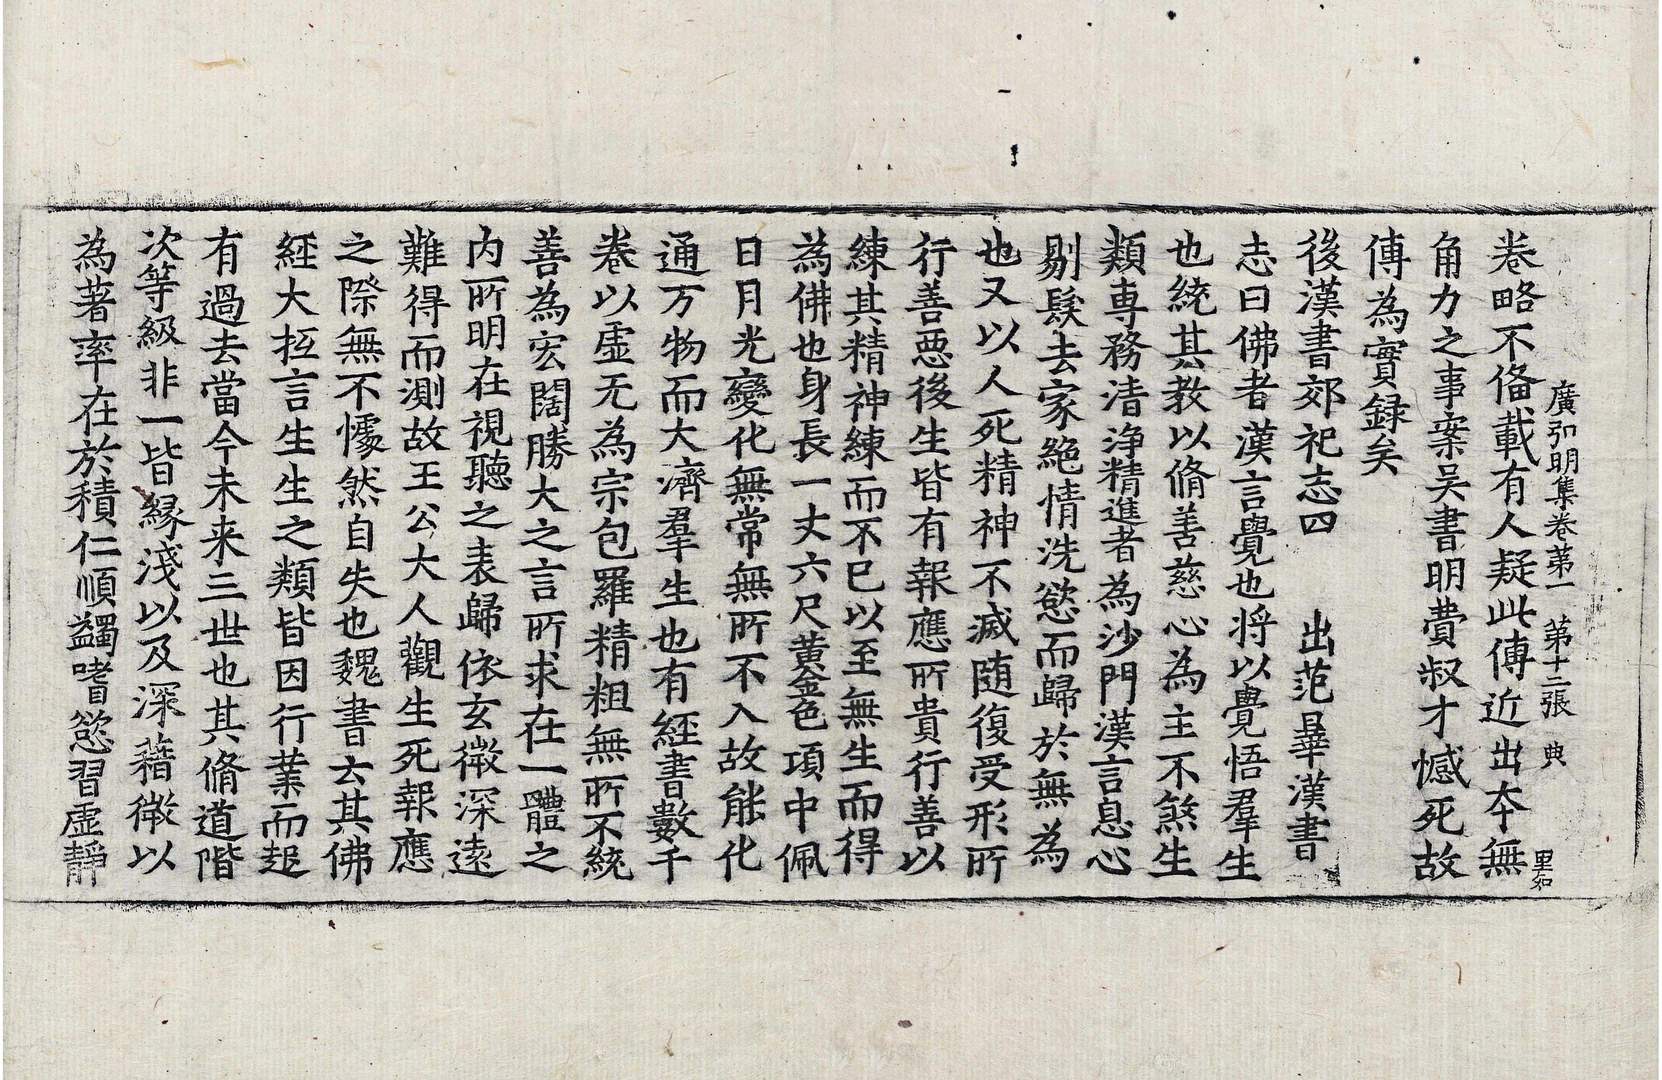 廣弘明集卷第一　第十二張　典
卷略不俻載有人疑此傳近出夲無
角力之事案吴書明費叔才憾死故
傳為實録矣
後漢書郊祀志四　出范曅漢書
志曰佛者漢言覺也将以覺悟羣生
也統其教以脩善慈心為主不煞生
類專務清淨精進者為沙門漢言息心
剔髮去家絶情洗慾而歸於無為
也又以人死精神不滅随復受形所
行善惡後生皆有報應所貴行善以
練其精神練而不已以至無生而得
為佛也身長一丈六尺黄金色項中佩
日月光變化無常無所不入故能化
通万物而大濟羣生也有經書數千
卷以虛无為宗包羅精粗無所不統
善為宏闊勝大之言所求在一體之
内所明在視聽之表歸依玄微深遠
難得而測故王公大人觀生死報應
之際無不懅然自失也魏書云其佛
經大抵言生生之類皆因行業而起
有過去當今未来三世也其脩道階
次等級非一皆縁淺以及深藉微以
為著率在於積仁順蠲嗜慾習虛靜